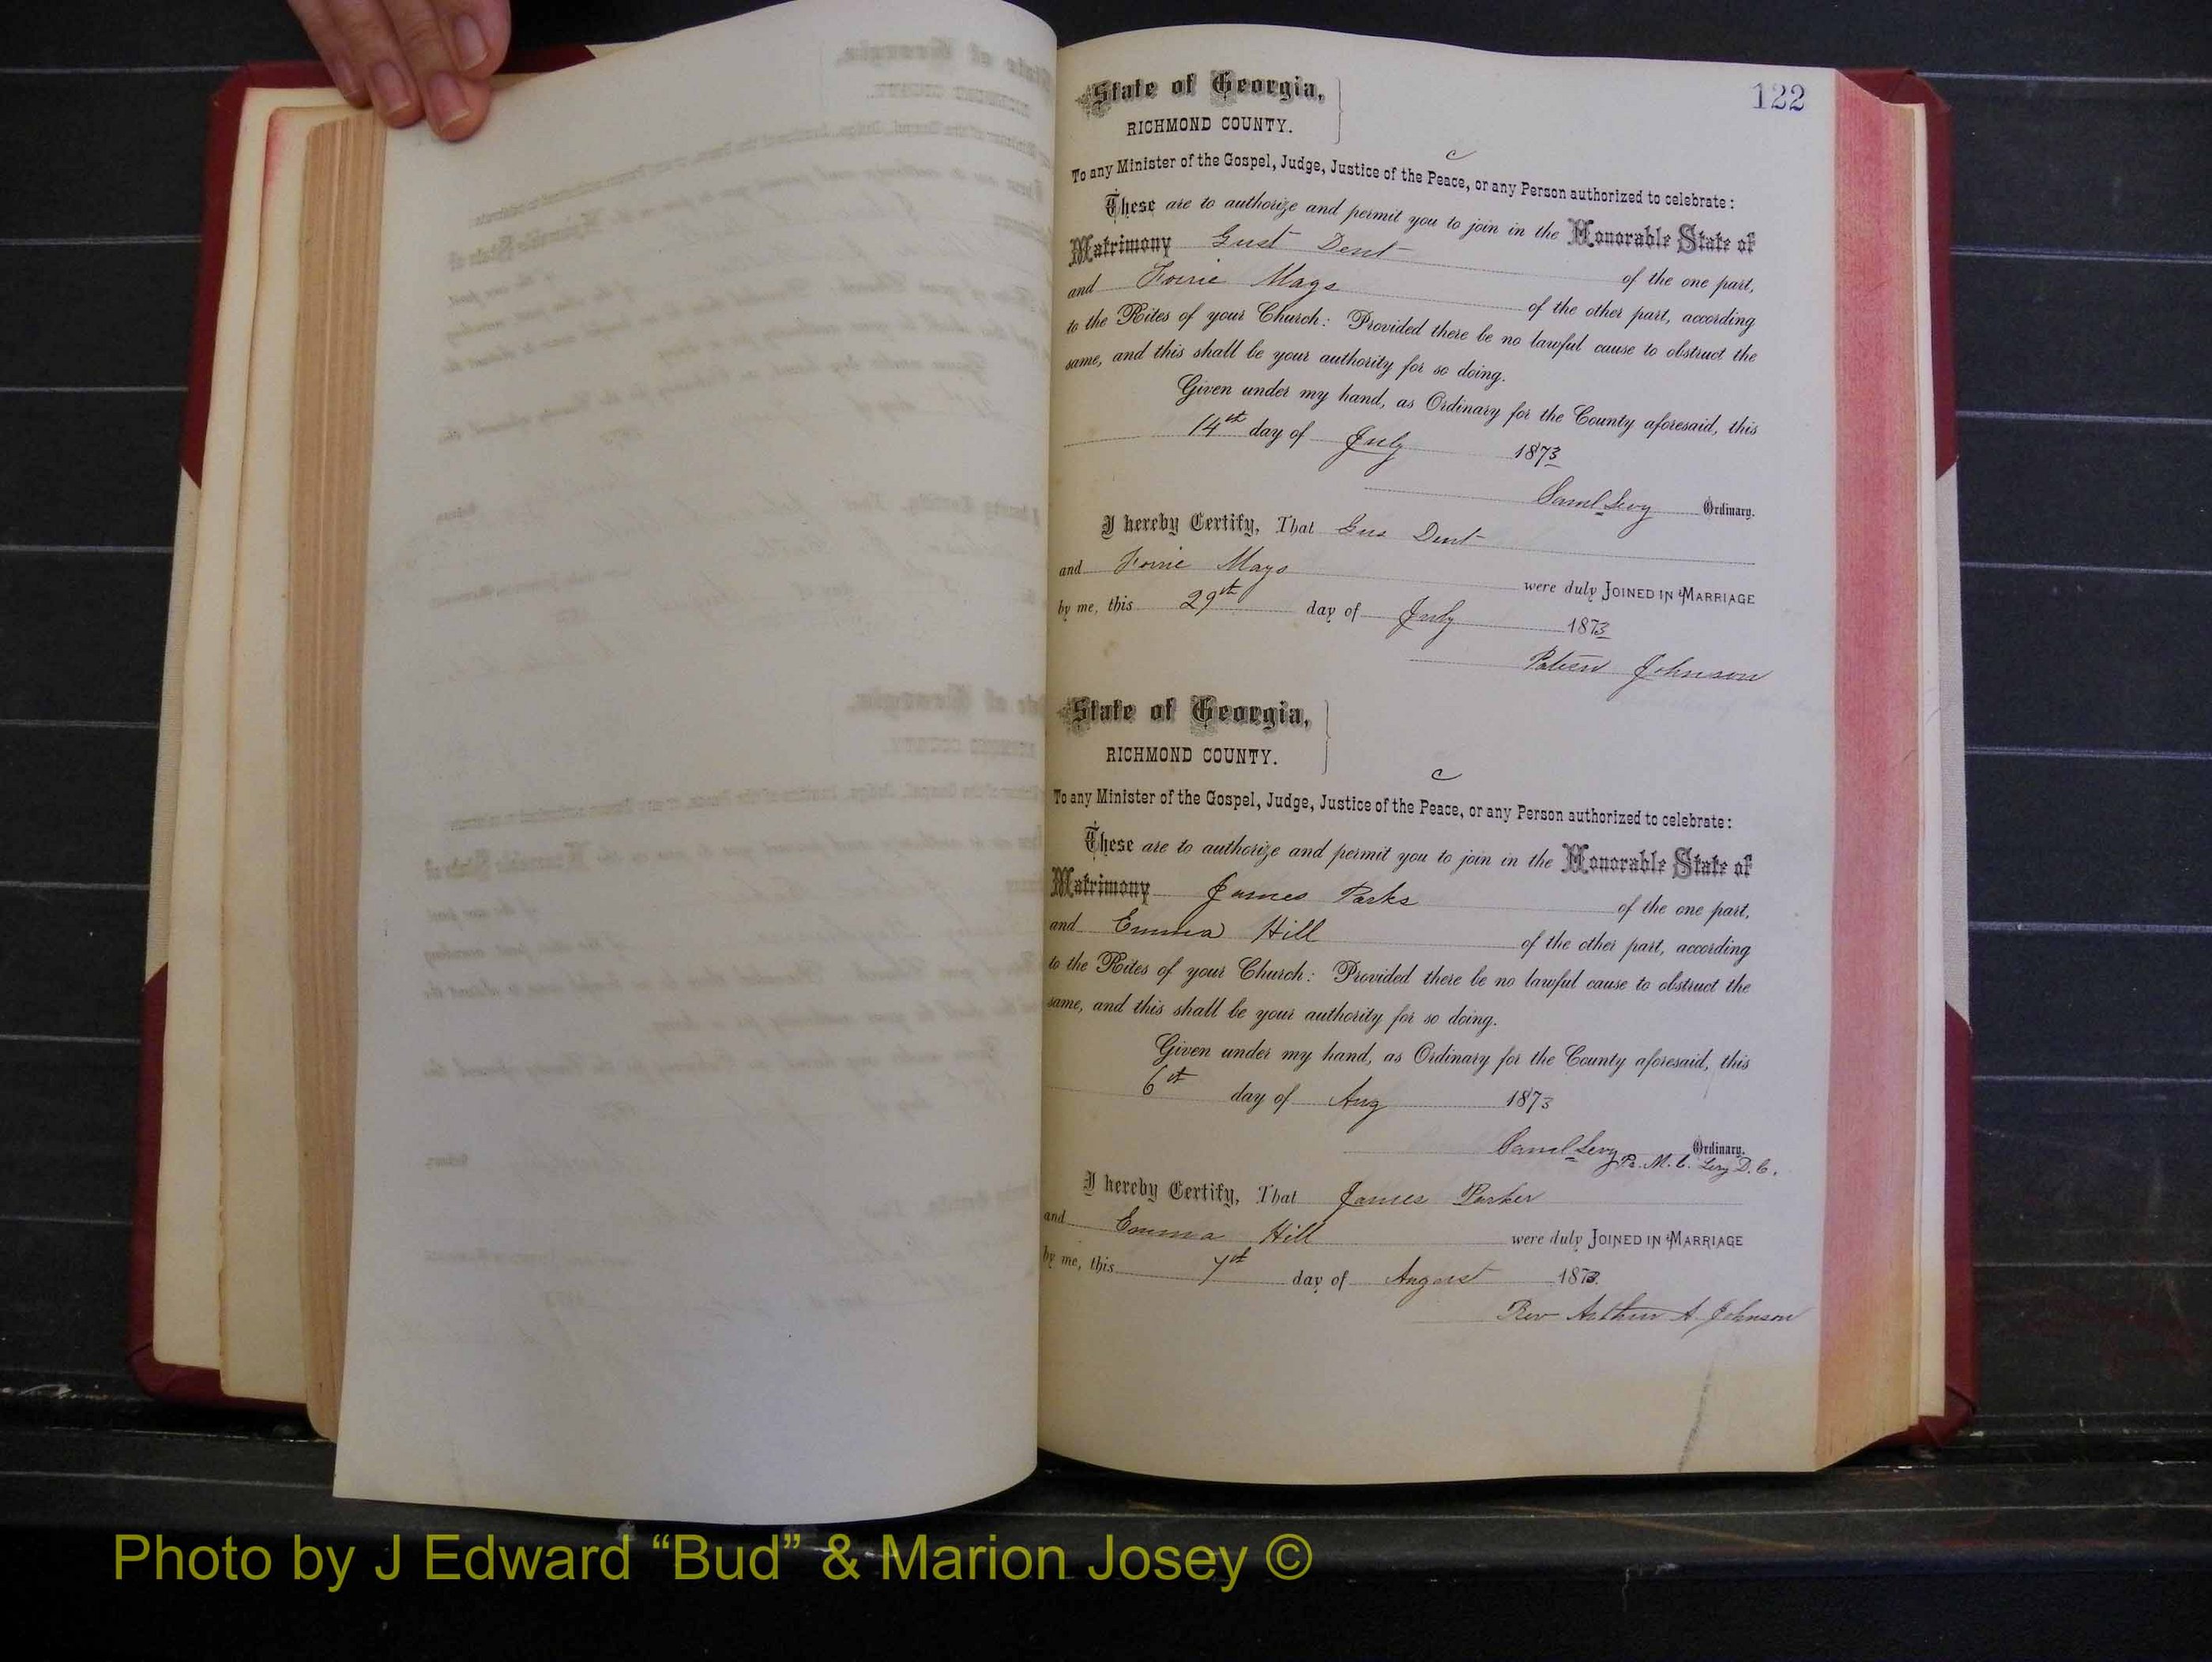 122
State of Georgia,
RICHMOND COUNTY.
c
To any Minister of the Gospel, Judge, Justice of the Peace, or any Person authorized to celebrate:
These are to authorize and permit you to join in the Honorable State of
Matrimony Gust Dent of the one part,
and Mays of the other part, according
to the Rites of your Church: Provided there be no lawful cause to obstruct the
same, and this shall be your authority for so doing.
Given under my hand, as Ordinary for the County aforesaid, this
14th day of July 1873
Saml Levy Ordinary.
I hereby Certify, That Gus Dent
and Mays were duly JOINED IN MARRIAGE
by me, this 29th day of July 1873
Johnson
State of Georgia,
RICHMOND COUNTY.
c
To any Minister of the Gospel, Judge, Justice of the Peace, or any Person authorized to celebrate:
These are to authorize and permit you to join in the Honorable State of
Matrimony James Parks of the one part,
and Emma Hill of the other part, according
to the Rites of your Church: Provided there be no lawful cause to obstruct the
same, and this shall be your authority for so doing.
Given under my hand, as Ordinary for the County aforesaid, this
6th day of Aug 1873
Saml Levy Ordinary.
M. C. Levy D. C.
I hereby Certify, That James Parker
and Emma Hill were duly JOINED IN MARRIAGE
by me, this 7th day of August 1873.
Rev Arthur A. Johnson
Photo by J Edward “Bud” & Marion Josey ©